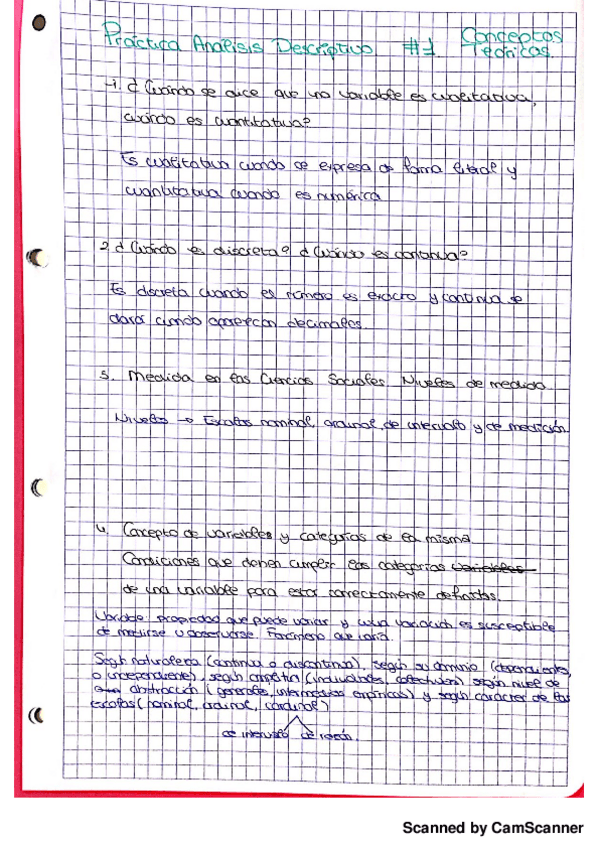 Práctica Análisis Descriptivo #1 Conceptos Teóricos.
1. ¿Cuándo se dice que una variable es cualitativa,
cuándo es cuantitativa?
Es cualitativa cuando se expresa de forma literal y
cuantitativa cuando es numérica
2. ¿Cuándo es discreta? ¿Cuándo es continua?
Es discreta cuando el número es exacto y continua se
dará cuando aparezcan decimales.
3. Medida en las Ciencias Sociales. Niveles de medida
Niveles → Escalas nominal, ordinal, de intervalo y de medición.
4. Concepto de variables y categorías de la misma.
Condiciones que deben cumplir las categorías variables
de una variable para estar correctamente definidas.
Variable propiedad que puede variar y cuya variación es susceptible
de medirse u observarse. Fenómeno que varía.
Según naturaleza (continua o discontinua), según su dominio (dependiente,
o independiente), según amplitud (individuales, colectivas) según nivel de
abstracción (generales, intermedias empíricas) y según carácter de las
escalas (nominal, ordinal, cardinal)
de intervalo de razón.
Scanned by CamScanner